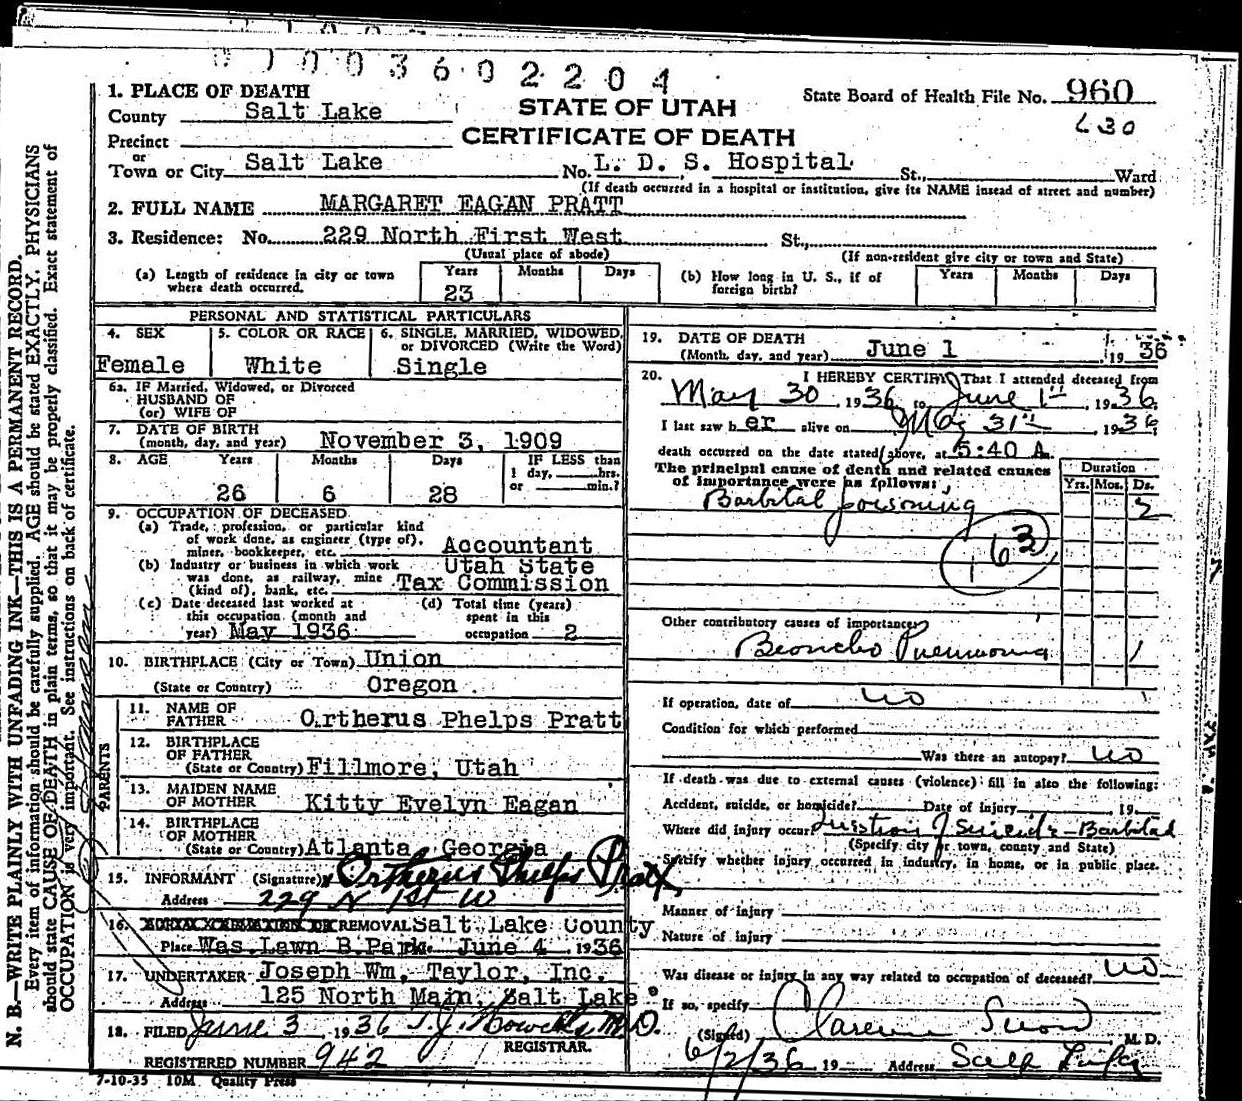 0 1 0 0 3 6 0 2 2 0 4
1. PLACE OF DEATH
County Salt Lake
Precinct
or
Town or City Salt Lake
STATE OF UTAH
CERTIFICATE OF DEATH
State Board of Health File No. 960
630
No. L. D. S. Hospital St., Ward
(If death occurred in a hospital or institution, give its NAME instead of street and number)
2. FULL NAME MARGARET EAGAN PRATT
3. Residence: No. 229 North First West St.,
(Usual place of abode) (If non-resident give city or town and State)
(a) Length of residence in city or town where death occurred. Years 23 Months Days
(b) How long in U. S., if of foreign birth? Years Months Days
PERSONAL AND STATISTICAL PARTICULARS
4. SEX Female
5. COLOR OR RACE White
6. SINGLE, MARRIED, WIDOWED, or DIVORCED (Write the Word) Single
6a. IF Married, Widowed, or Divorced
HUSBAND OF
(or) WIFE OF
7. DATE OF BIRTH
(month, day, and year) November 3, 1909
8. AGE Years Months Days IF LESS than
1 day, hrs.
or min.?
26 6 28
9. OCCUPATION OF DECEASED
(a) Trade, profession, or particular kind
of work done, as engineer (type of),
miner, bookkeeper, etc. Accountant
(b) Industry or business in which work
was done, as railway, mine
(kind of), bank, etc. Utah State
Tax Commission
(c) Date deceased last worked at
this occupation (month and
year) May 1936
(d) Total time (years)
spent in this
occupation 2
10. BIRTHPLACE (City or Town) Union
(State or Country) Oregon
PARENTS
11. NAME OF
FATHER Ortherus Phelps Pratt
12. BIRTHPLACE
OF FATHER
(State or Country) Fillmore, Utah
13. MAIDEN NAME
OF MOTHER Kitty Evelyn Eagan
14. BIRTHPLACE
OF MOTHER
(State or Country) Atlanta, Georgia
15. INFORMANT (Signature) Ortherus Phelps Pratt
Address 229 N 1st W
16. REMOVAL Salt Lake County
Place Was. Lawn B. Park. June 4 1936
17. UNDERTAKER Joseph Wm. Taylor, Inc.
Address 125 North Main, Salt Lake
18. FILED June 3 1936 T. J. Howells, M.D.
REGISTRAR.
REGISTERED NUMBER 942
7-10-35 10M Quality Press
19. DATE OF DEATH
(Month, day, and year) June 1 19 36
20. I HEREBY CERTIFY, That I attended deceased from
May 30, 1936, to June 1st, 1936
I last saw her alive on May 31st, 1936
death occurred on the date stated above, at 5:40 A.
The principal cause of death and related causes
of importance were as follows:
Duration
Yrs. Mos. Ds.
Barbital poisoning 2
163
Other contributory causes of importance:
Broncho Pneumonia 1
If operation, date of no
Condition for which performed
Was there an autopsy? no
If death was due to external causes (violence) fill in also the following:
Accident, suicide, or homicide? Date of injury 19
Where did injury occur? Question of Suicide - Barbital
(Specify city or town, county and State)
Specify whether injury occurred in industry, in home, or in public place.
Manner of injury
Nature of injury
Was disease or injury in any way related to occupation of deceased? no
If so, specify
(Signed) Clarence Snow M. D.
6/2/36 19 Address Salt Lake
N. B.—WRITE PLAINLY WITH UNFADING INK—THIS IS A PERMANENT RECORD.
Every item of information should be carefully supplied. AGE should be stated EXACTLY. PHYSICIANS
should state CAUSE OF DEATH in plain terms, so that it may be properly classified. Exact statement of
OCCUPATION is very important. See instructions on back of certificate.